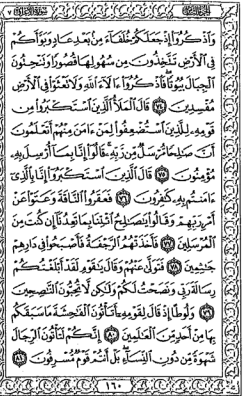 وَاذْكُرُوا إِذْ جَعَلَكُمْ خُلَفَاءَ مِنْ بَعْدِ عَادٍ وَبَوَّأَكُمْ
فِي الْأَرْضِ تَتَّخِذُونَ مِنْ سُهُولِهَا قُصُورًا وَتَنْحِتُونَ
الْجِبَالَ بُيُوتًا فَاذْكُرُوا آلَاءَ اللَّهِ وَلَا تَعْثَوْا فِي الْأَرْضِ
مُفْسِدِينَ ٧٤ قَالَ الْمَلَأُ الَّذِينَ اسْتَكْبَرُوا مِنْ
قَوْمِهِ لِلَّذِينَ اسْتُضْعِفُوا لِمَنْ آمَنَ مِنْهُمْ أَتَعْلَمُونَ
أَنَّ صَالِحًا مُرْسَلٌ مِنْ رَبِّهِ قَالُوا إِنَّا بِمَا أُرْسِلَ بِهِ
مُؤْمِنُونَ ٧٥ قَالَ الَّذِينَ اسْتَكْبَرُوا إِنَّا بِالَّذِي
آمَنْتُمْ بِهِ كَافِرُونَ ٧٦ فَعَقَرُوا النَّاقَةَ وَعَتَوْا عَنْ
أَمْرِ رَبِّهِمْ وَقَالُوا يَا صَالِحُ ائْتِنَا بِمَا تَعِدُنَا إِنْ كُنْتَ مِنَ
الْمُرْسَلِينَ ٧٧ فَأَخَذَتْهُمُ الرَّجْفَةُ فَأَصْبَحُوا فِي دَارِهِمْ
جَاثِمِينَ ٧٨ فَتَوَلَّى عَنْهُمْ وَقَالَ يَا قَوْمِ لَقَدْ أَبْلَغْتُكُمْ
رِسَالَةَ رَبِّي وَنَصَحْتُ لَكُمْ وَلَكِنْ لَا تُحِبُّونَ النَّاصِحِينَ
٧٩ وَلُوطًا إِذْ قَالَ لِقَوْمِهِ أَتَأْتُونَ الْفَاحِشَةَ مَا سَبَقَكُمْ
بِهَا مِنْ أَحَدٍ مِنَ الْعَالَمِينَ ٨٠ إِنَّكُمْ لَتَأْتُونَ الرِّجَالَ
شَهْوَةً مِنْ دُونِ النِّسَاءِ بَلْ أَنْتُمْ قَوْمٌ مُسْرِفُونَ ٨١
١٦٠